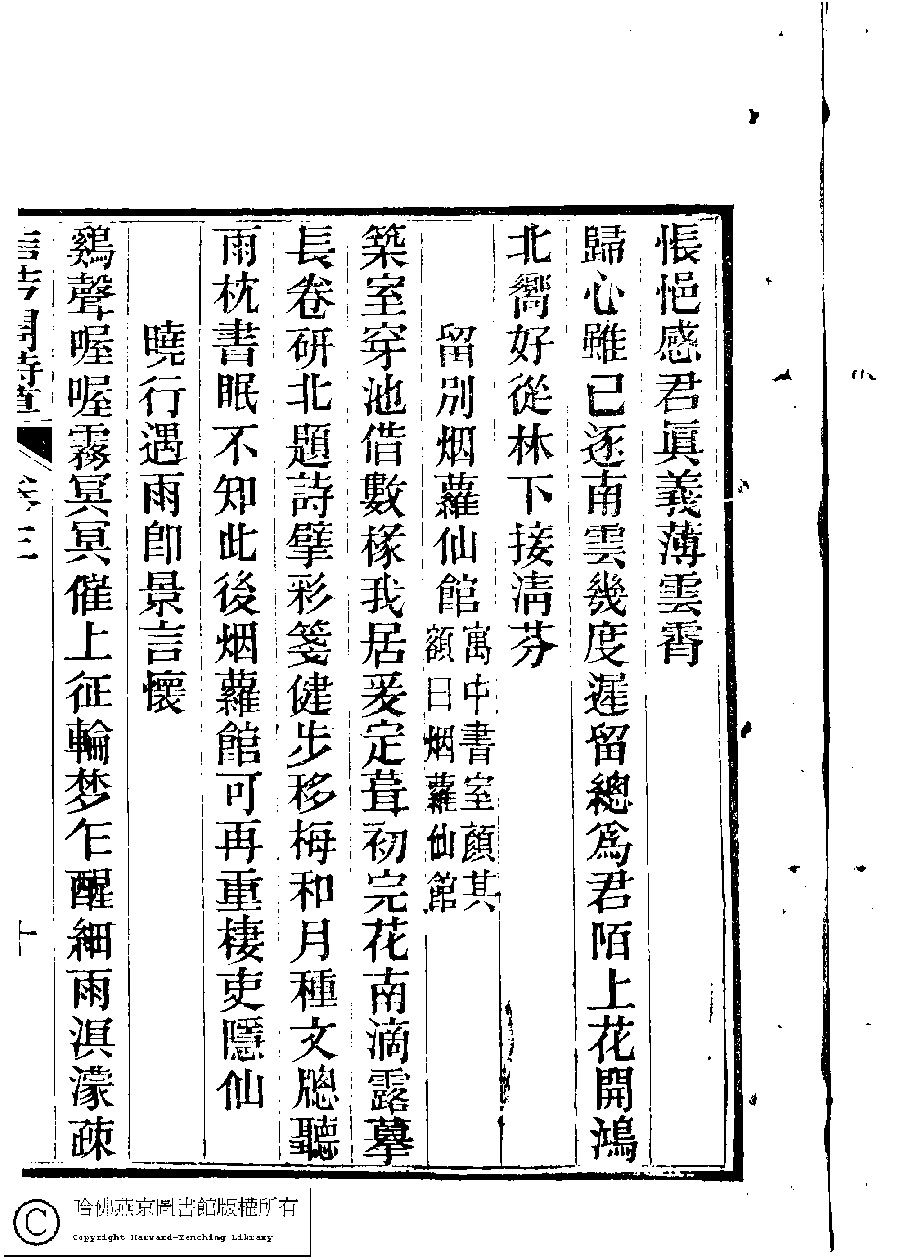 悵悒感君眞義薄雲霄
歸心雖已逐南雲幾度遲留總爲君陌上花開鴻
北嚮好從林下接淸芬
留別烟蘿仙館寓中書室顏其
額曰烟蘿仙館
築室穿池借數椽我居爰定葺初完花南滴露摹
長卷研北題詩擘彩箋健步移梅和月種文牕聽
雨枕書眠不知此後烟蘿館可再重棲吏隱仙
曉行遇雨卽景言懷
鷄聲喔喔霧冥冥催上征輪梦乍醒細雨溟濛疎
卷三
十
哈佛燕京圖書館版權所有
Copyright Harvard-Yenching Library